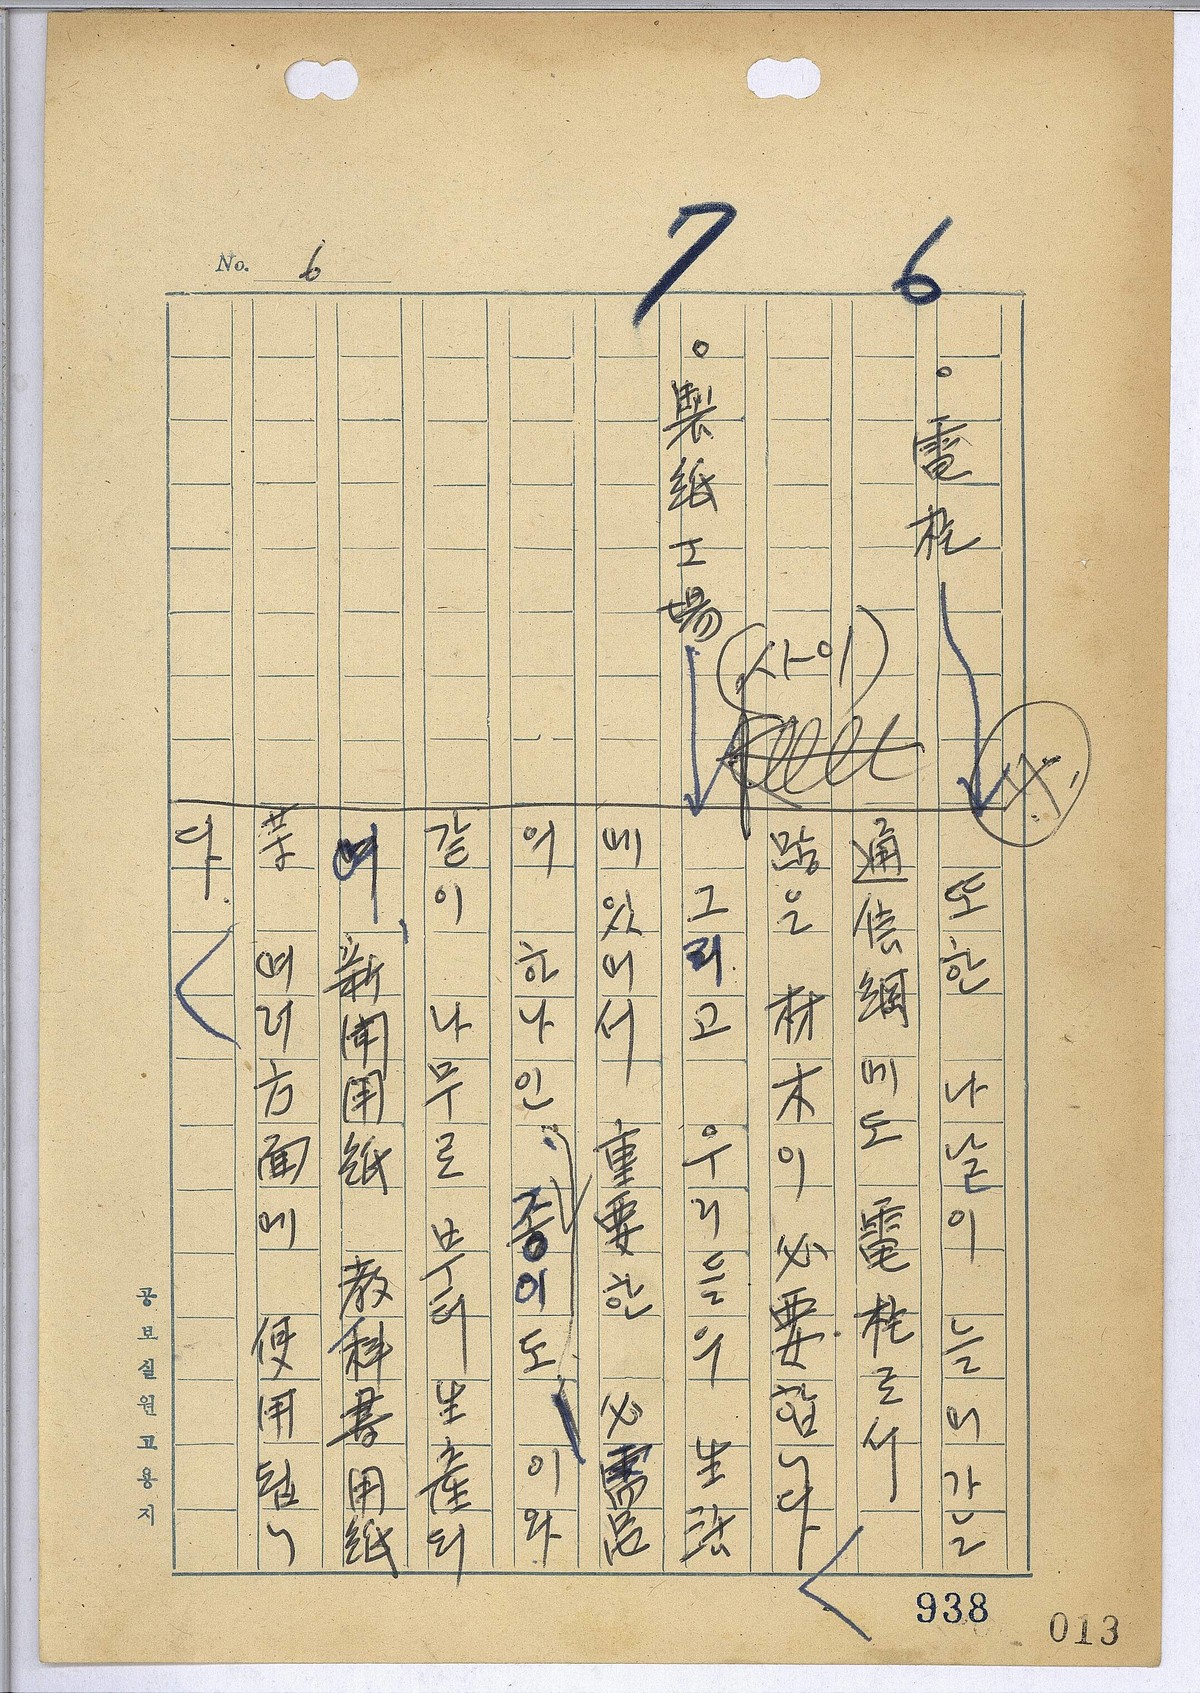 No. 6
6
。電柱
또한 나날이 늘어가는
通信網에도 電柱로서
많은 材木이 必要합니다
7
。製紙工場
(사이)
그리고 우리들의 生活
에있어서 重要한 必需品
의 하나인 종이도 이와
같이 나무로 부터 生産되
여 新聞用紙 敎科書用紙
等 여러方面에 使用됩니
다.
공보실원고용지
938
013